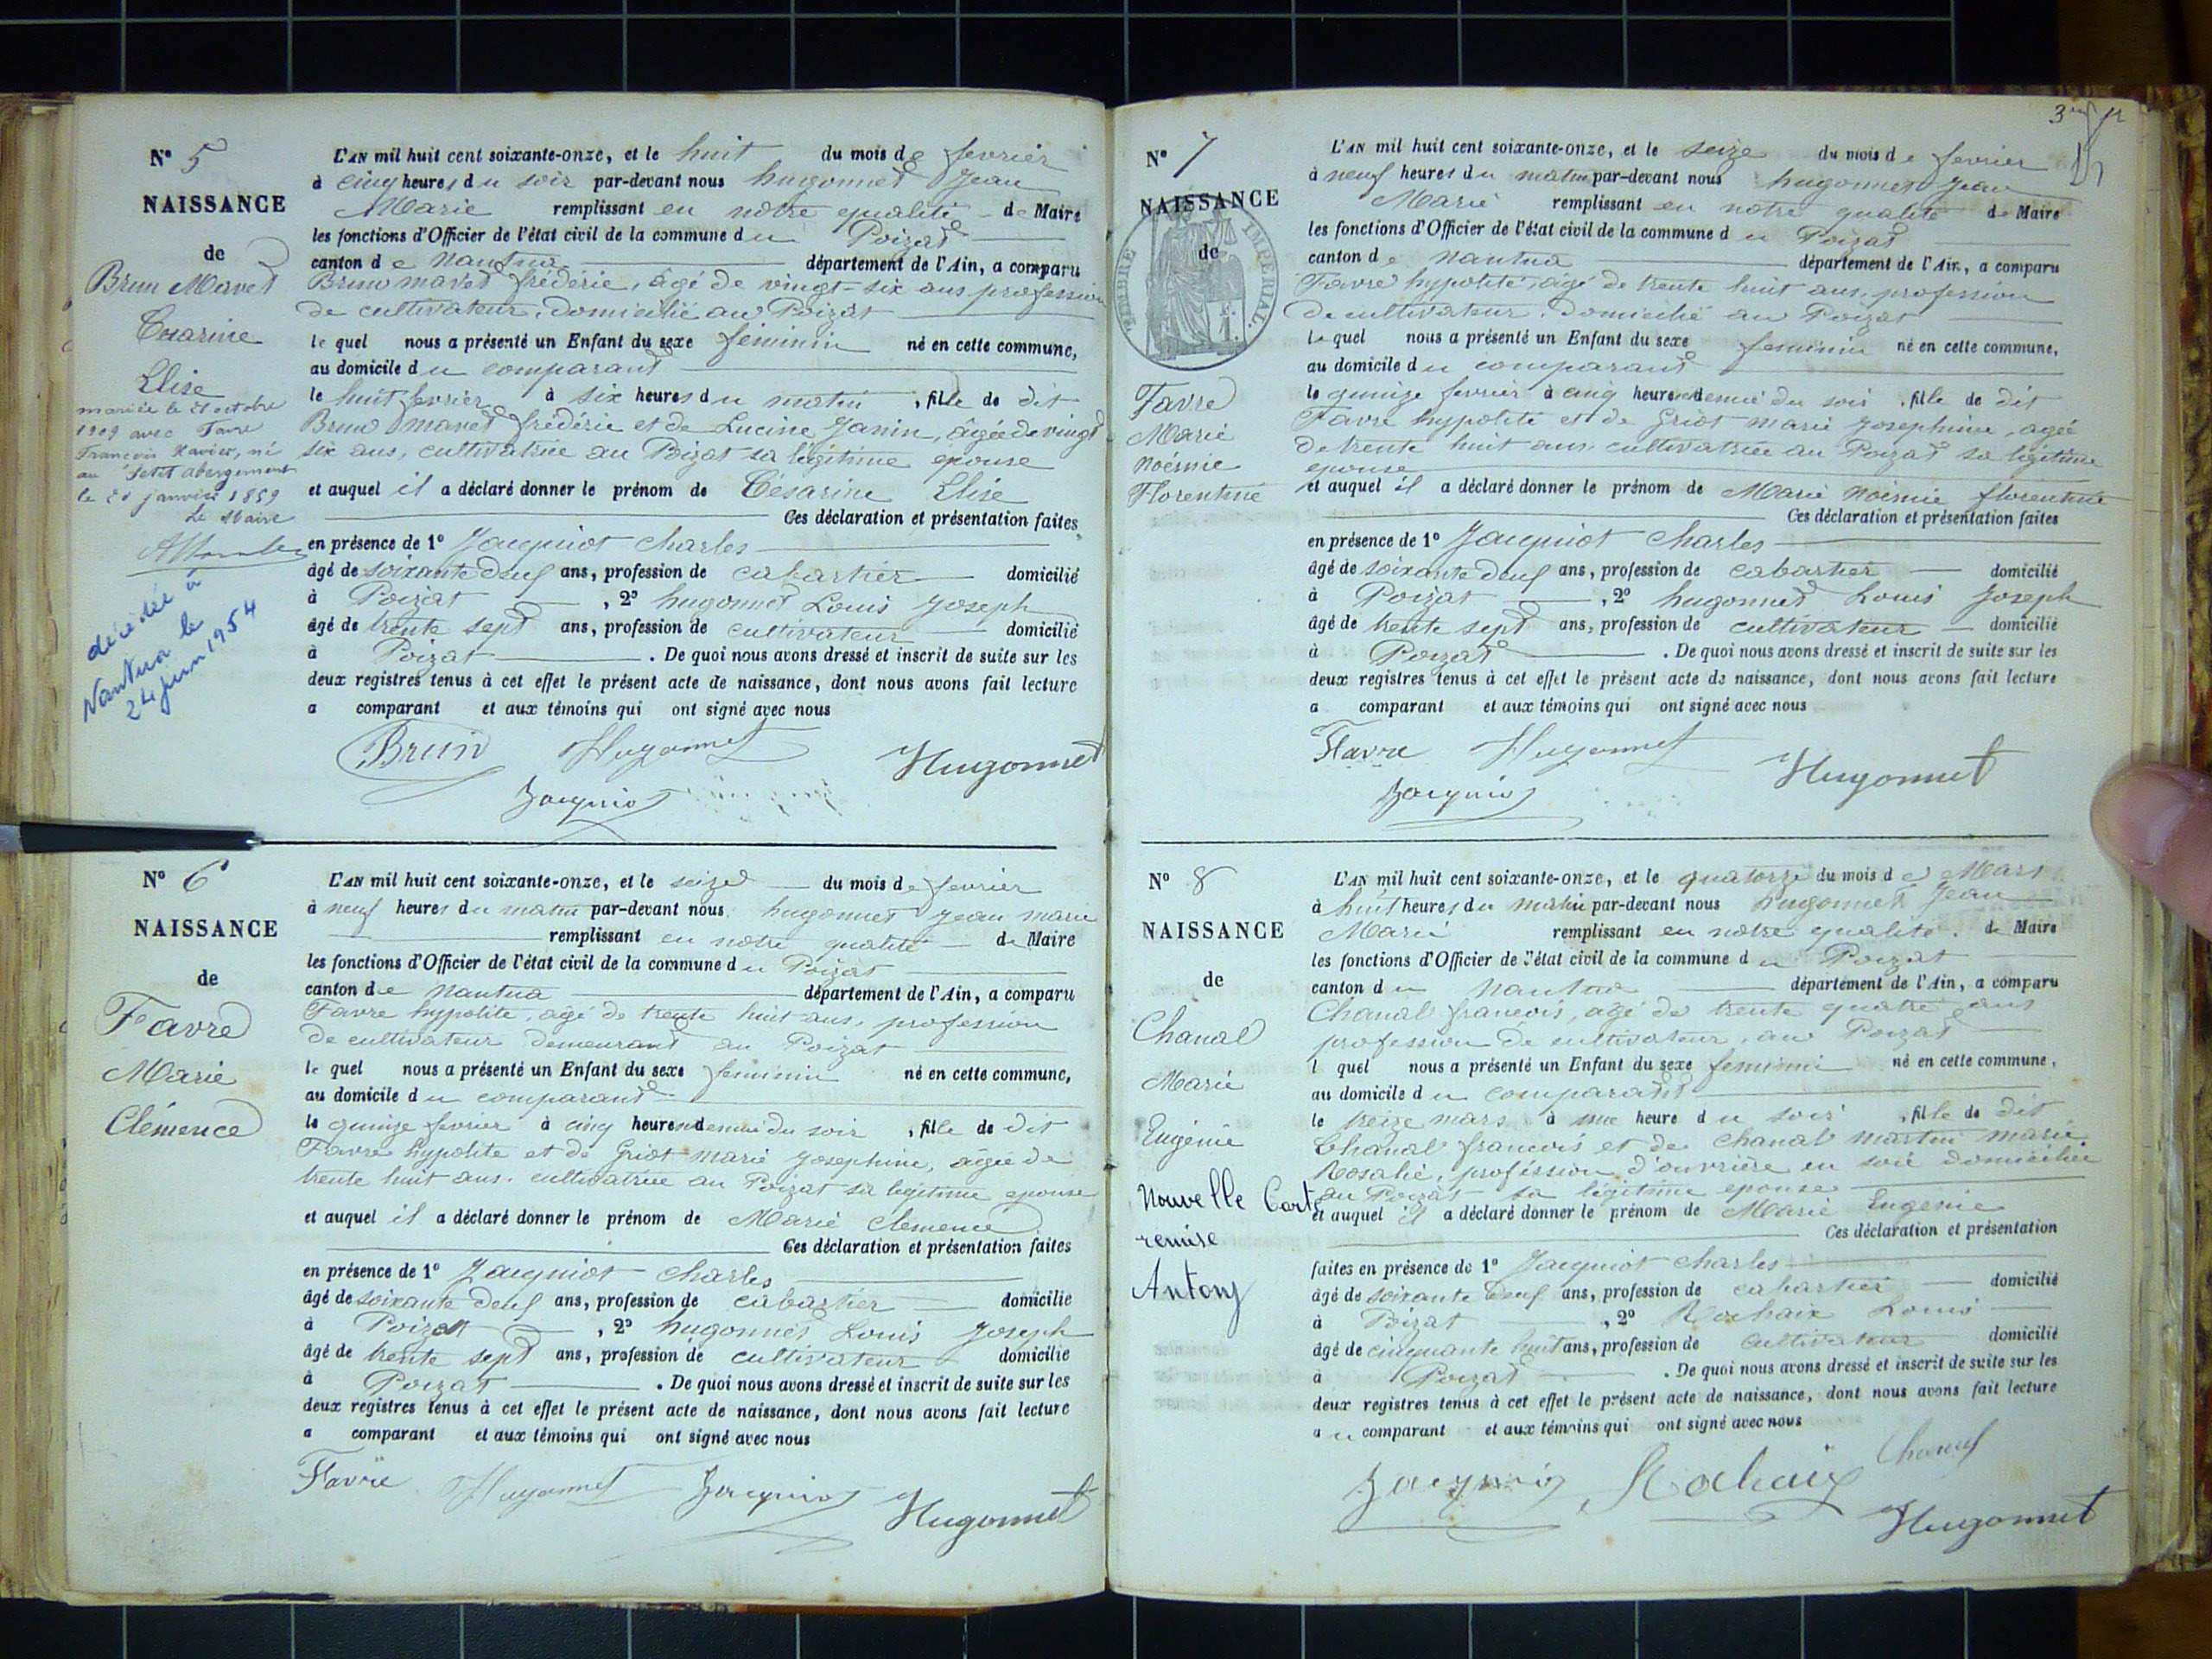 N° 5
NAISSANCE
de
Brun Mavet
Césarine
Elise
mariée le 21 octobre
1909 avec Favre
François Xavier, né
au Petit Abergement
le 21 janvier 1859
Le Maire
décédée à
Nantua le
24 juin 1954
L'AN mil huit cent soixante-onze, et le huit du mois de fevrier
à cinq heures du soir par-devant nous hugonnet Jean
Marie remplissant en notre qualité de Maire
les fonctions d'Officier de l'état civil de la commune du Poizat
canton de Nantua département de l'Ain, a comparu
Brun mavet frédéric, âgé de vingt-six ans profession
de cultivateur, domicilié au Poizat
lequel nous a présenté un Enfant du sexe féminin né en cette commune,
au domicile du comparant
le huit fevrier à six heures du matin, fille de dit
Brun mavet frédéric et de Lucine Janin, âgée de vingt
six ans, cultivatrice au Poizat sa légitime epouse
et auquel il a déclaré donner le prénom de Césarine Elise
Ces déclaration et présentation faites
en présence de 1° Jacquiot Charles
âgé de soixante deuf ans, profession de cabartier domicilié
à Poizat, 2° hugonnet Louis Joseph
âgé de trente sept ans, profession de cultivateur domicilié
à Poizat. De quoi nous avons dressé et inscrit de suite sur les
deux registres tenus à cet effet le présent acte de naissance, dont nous avons fait lecture
a comparant et aux témoins qui ont signé avec nous
Brun Hugonnet Hugonnet
Jacquiot
N° 6
NAISSANCE
de
Favre
Marie
Clémence
L'AN mil huit cent soixante-onze, et le seize du mois de fevrier
à neuf heures du matin par-devant nous hugonnet Jean marie
remplissant en notre qualité de Maire
les fonctions d'Officier de l'état civil de la commune du Poizat
canton de Nantua département de l'Ain, a comparu
Favre hypolite, agé de trente huit ans, profession
de cultivateur demeurant au Poizat
lequel nous a présenté un Enfant du sexe feminin né en cette commune,
au domicile du comparant
le quinze fevrier à cinq heures et demie du soir, fille de dit
Favre hypolite et de Griot marie Josephine, agée de
trente huit ans. cultivatrice au Poizat sa legitime epouse
et auquel il a déclaré donner le prénom de Marie Clemence
Ces déclaration et présentation faites
en présence de 1° Jacquiot Charles
âgé de soixante deuf ans, profession de cabartier domicilié
à Poizat, 2° hugonnet Louis Joseph
âgé de trente sept ans, profession de cultivateur domicilié
à Poizat. De quoi nous avons dressé et inscrit de suite sur les
deux registres tenus à cet effet le présent acte de naissance, dont nous avons fait lecture
a comparant et aux témoins qui ont signé avec nous
Favre Hugonnet Jacquiot Hugonnet
N° 7
NAISSANCE
de
TIMBRE IMPERIAL.
Favre
Marie
Noémie
Florentine
L'AN mil huit cent soixante-onze, et le seize du mois de fevrier
à neuf heures du matin par-devant nous hugonnet Jean
Marie remplissant en notre qualité de Maire
les fonctions d'Officier de l'état civil de la commune du Poizat
canton de Nantua département de l'Ain, a comparu
Favre hypolite, agé de trente huit ans, profession
de cultivateur. domicilié au Poizat
lequel nous a présenté un Enfant du sexe feminin né en cette commune,
au domicile du comparant
le quinze fevrier à cinq heures et demie du soir, fille de dit
Favre hypolite et de Griot marie Josephine, agée
de trente huit ans cultivatrice au Poizat sa legitime
epouse
et auquel il a déclaré donner le prénom de Marie Noémie florentine
Ces déclaration et présentation faites
en présence de 1° Jacquiot Charles
âgé de soixante deuf ans, profession de cabartier domicilié
à Poizat, 2° hugonnet Louis Joseph
âgé de trente sept ans, profession de cultivateur domicilié
à Poizat. De quoi nous avons dressé et inscrit de suite sur les
deux registres tenus à cet effet le présent acte de naissance, dont nous avons fait lecture
a comparant et aux témoins qui ont signé avec nous
Favre Hugonnet Hugonnet
Jacquiot
N° 8
NAISSANCE
de
Chanal
Marie
Eugénie
Nouvelle Carte
remise
Antony
L'AN mil huit cent soixante-onze, et le quatorze du mois de Mars
à huit heures du matin par-devant nous hugonnet Jean
Marie remplissant en notre qualité. de Maire
les fonctions d'Officier de l'état civil de la commune du Poizat
canton du Nantua département de l'Ain, a comparu
Chanal francois, agé de trente quatre ans
profession de cultivateur, au Poizat
l quel nous a présenté un Enfant du sexe feminin né en cette commune,
au domicile du comparant
le treize mars à une heure du soir, fille de dit
Chanal francois et de Chanal martin marie
Rosalie, profession d'ouvrière en soie domiciliée
au Poizat sa légitime epouse
et auquel il a déclaré donner le prénom de Marie Eugenie
Ces déclaration et présentation
faites en présence de 1° Jacquiot Charles
âgé de soixante deuf ans, profession de cabartier domicilié
à Poizat, 2° Rochaix Louis
âgé de cinquante huit ans, profession de cultivateur domicilié
à Poizat. De quoi nous avons dressé et inscrit de suite sur les
deux registres tenus à cet effet le présent acte de naissance, dont nous avons fait lecture
au comparant et aux témoins qui ont signé avec nous
Jacquiot Rochaix Chanal
Hugonnet